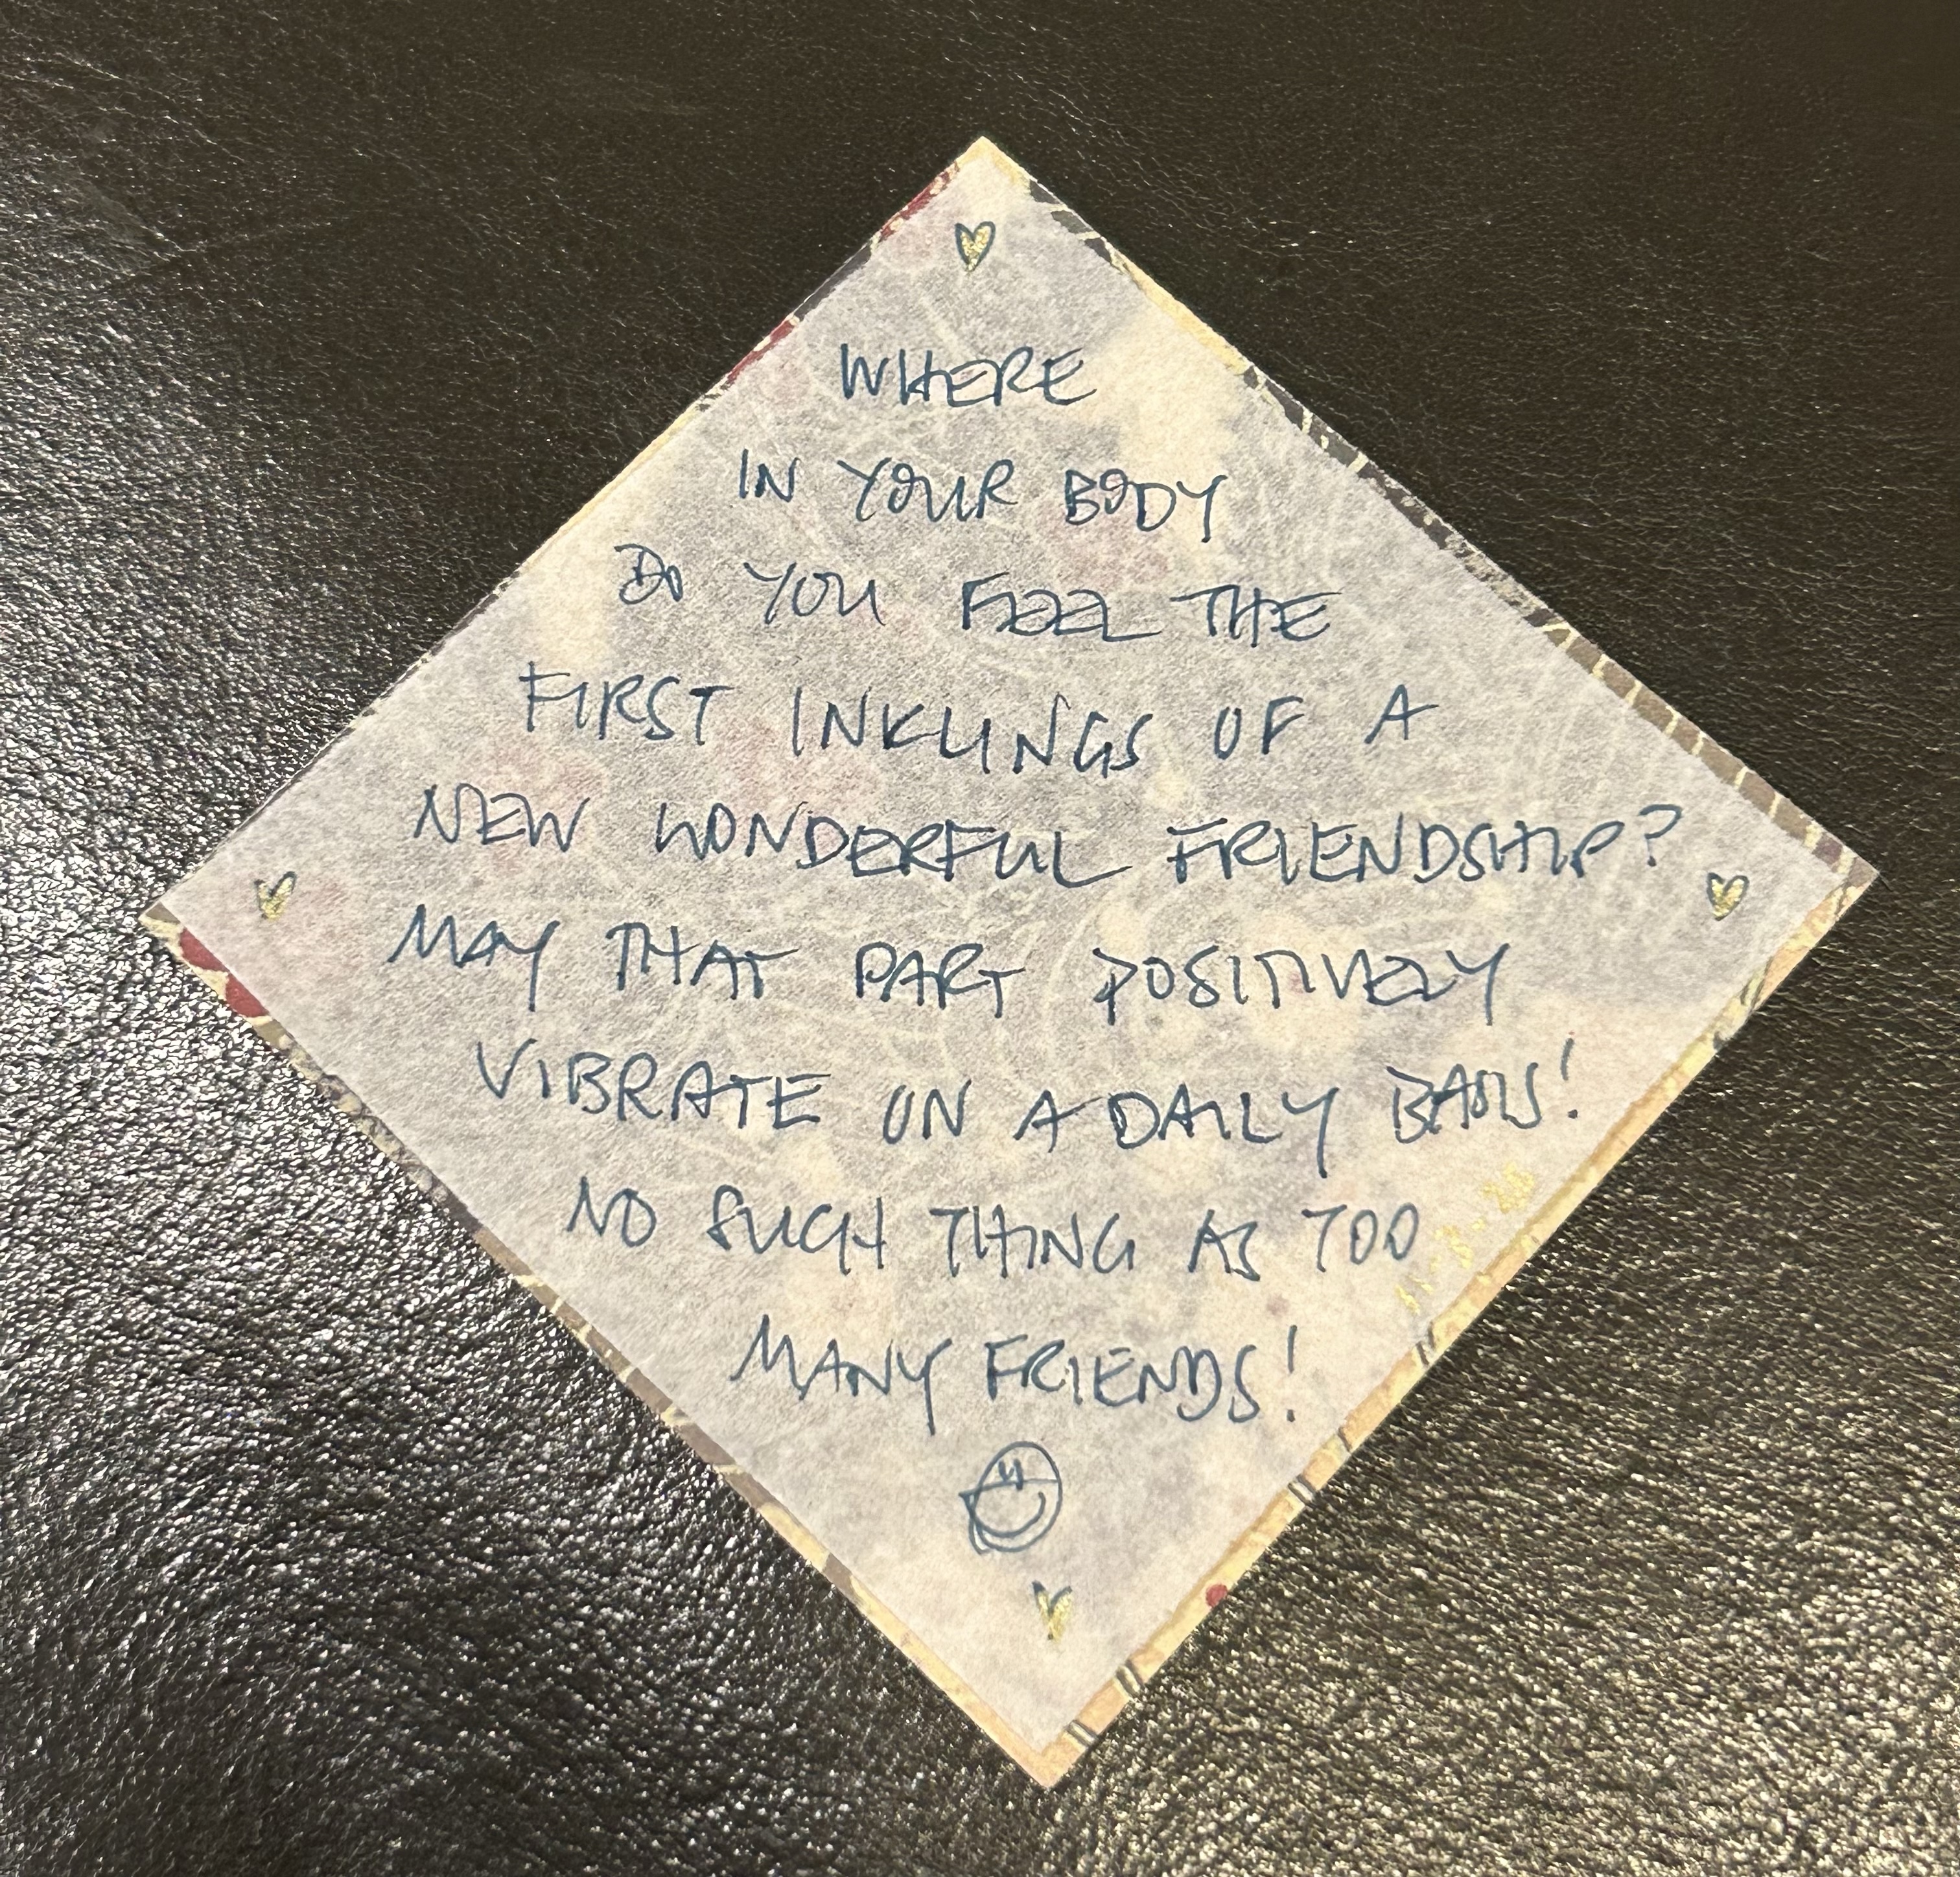 WHERE
IN YOUR BODY
DO YOU FEEL THE
FIRST INKLINGS OF A
NEW WONDERFUL FRIENDSHIP?
MAY THAT PART POSITIVELY
VIBRATE ON A DAILY BASIS!
NO SUCH THING AS TOO
MANY FRIENDS!